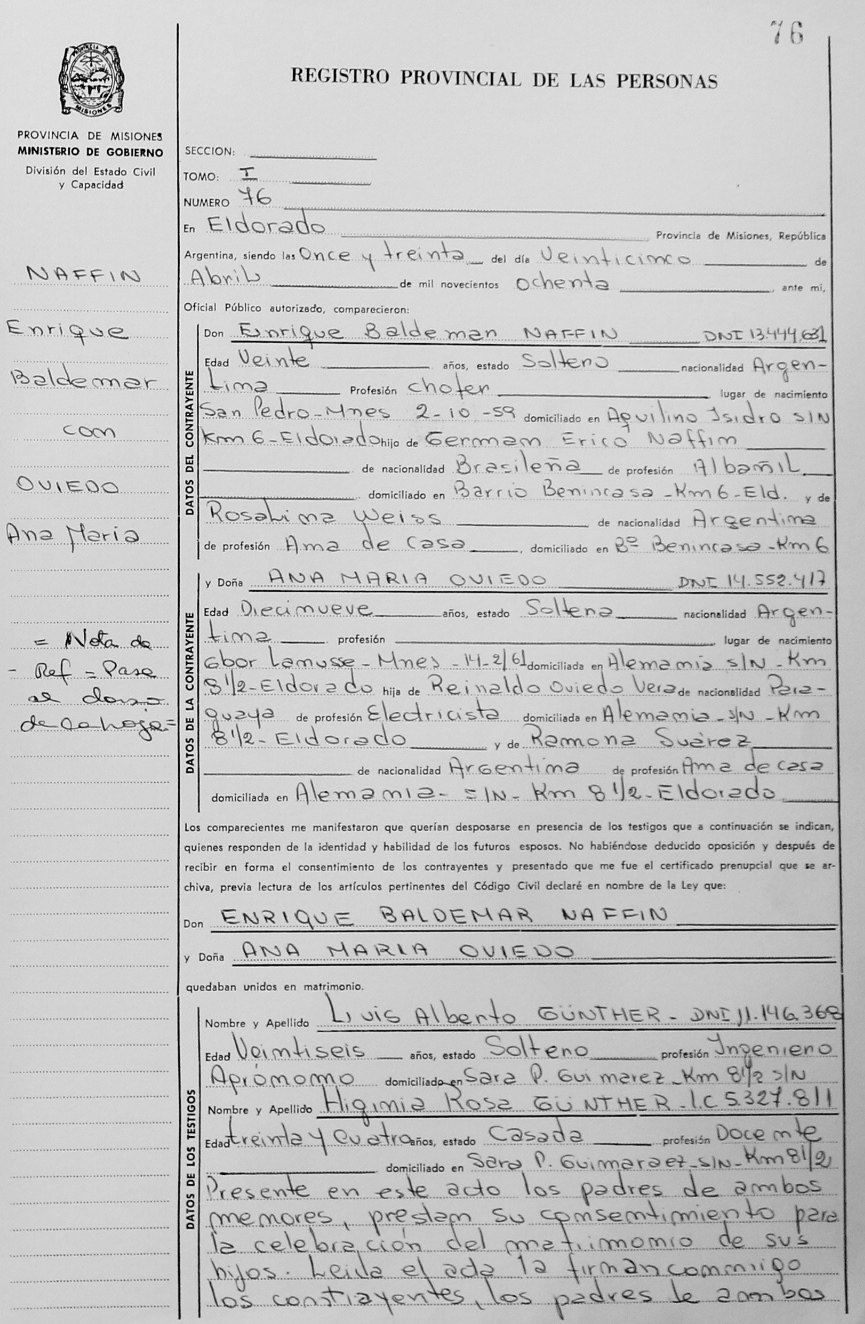 76
REGISTRO PROVINCIAL DE LAS PERSONAS
PROVINCIA DE MISIONES
PROVINCIA DE MISIONES
MINISTERIO DE GOBIERNO
División del Estado Civil
y Capacidad
NAFFIN
Enrique
Baldemar
con
OVIEDO
Ana Maria
= Nota de
- Ref = Pase
al dorso
de la hoja =
SECCION:
TOMO: I
NUMERO 76
En Eldorado Provincia de Misiones, República
Argentina, siendo las Once y treinta del día Veinticinco de
Abril de mil novecientos ochenta, ante mi,
Oficial Público autorizado, comparecieron:
DATOS DEL CONTRAYENTE
Don Enrique Baldeman NAFFIN DNI 13.444.631
Edad Veinte años, estado Soltero nacionalidad Argen-
tina Profesión chofer lugar de nacimiento
San Pedro-Mnes 2-10-59 domiciliado en Aquilino Isidro S/N
Km 6-Eldorado hijo de German Erico Naffin
de nacionalidad Brasileña de profesión Albañil
domiciliado en Barrio Benincasa-Km6-Eld. y de
Rosalina Weiss de nacionalidad Argentina
de profesión Ama de Casa, domiciliado en Bº Benincasa-Km6
DATOS DE LA CONTRAYENTE
y Doña ANA MARIA OVIEDO DNI 14.552.417
Edad Diecinueve años, estado Soltera nacionalidad Argen-
tina profesión lugar de nacimiento
Gbor Lanusse-Mnes-14-2/61 domiciliada en Alemania S/N-Km
8 1/2-Eldorado hija de Reinaldo Oviedo Vera de nacionalidad Para-
guaya de profesión Electricista domiciliada en Alemania-S/N-Km
8 1/2-Eldorado y de Ramona Suárez
de nacionalidad Argentina de profesión Ama de casa
domiciliada en Alemania-S/N-Km 8 1/2-Eldorado
Los comparecientes me manifestaron que querían desposarse en presencia de los testigos que a continuación se indican,
quienes responden de la identidad y habilidad de los futuros esposos. No habiéndose deducido oposición y después de
recibir en forma el consentimiento de los contrayentes y presentado que me fue el certificado prenupcial que se ar-
chiva, previa lectura de los artículos pertinentes del Código Civil declaré en nombre de la Ley que:
Don ENRIQUE BALDEMAR NAFFIN
y Doña ANA MARIA OVIEDO
quedaban unidos en matrimonio.
DATOS DE LOS TESTIGOS
Nombre y Apellido Luis Alberto GÜNTHER - DNI 11.146.368
Edad Veintiseis años, estado Soltero profesión Ingeniero
Agrónomo domiciliado en Sara P. Guimarez-Km 8 1/2 S/N
Nombre y Apellido Higinia Rosa GÜNTHER-L.C 5.327.811
Edad treinta y cuatro años, estado Casada profesión Docente
domiciliado en Sara P. Guimaraez-S/N-Km 8 1/2
Presente en este acto los padres de ambos
menores, prestan su consentimiento para
la celebración del matrimonio de sus
hijos. Leida el acta la firman conmigo
los contrayentes, los padres de ambos